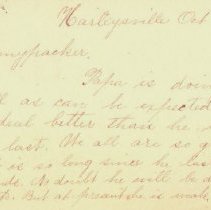 Harleysville Oct
nnypacker.
Papa is doin
ll as can be expected
deal better than he
last. We all are so g
t is so long since he
No doubt he will be
But at present he is